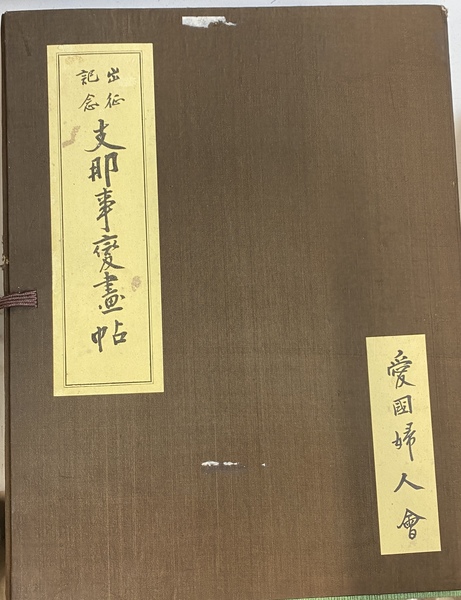 出征
記念
支那事変畫帖
愛國婦人會